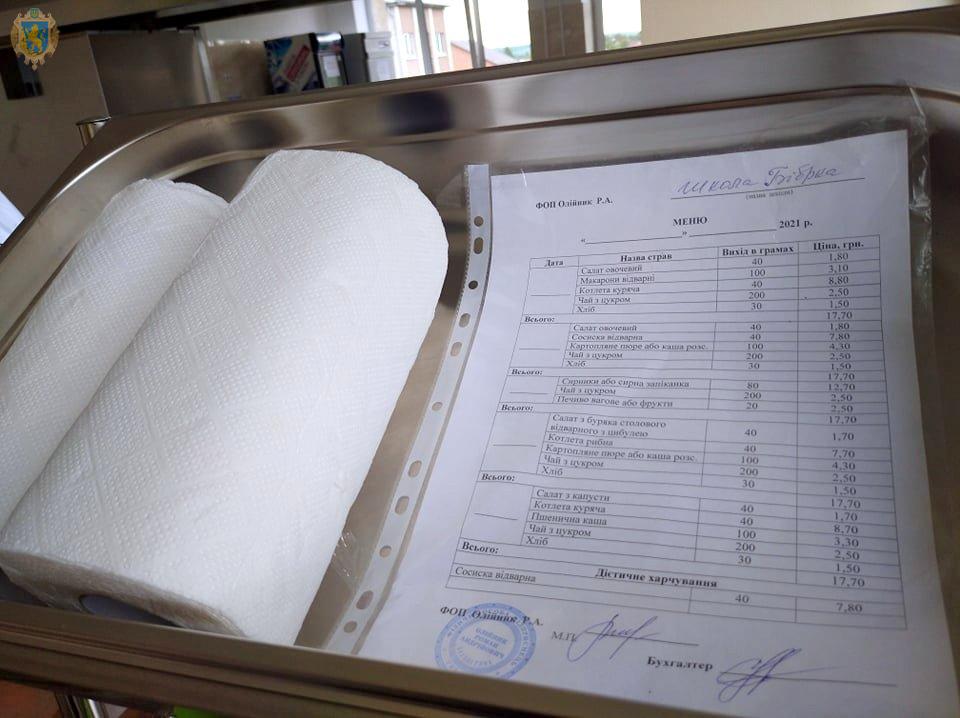 школа Бібрка
ФОП Олійник Р.А.
(назва закладу)
МЕНЮ
«____________» ____________ 2021 р.
Дата Назва страв Вихід в грамах Ціна, грн.
Салат овочевий 40 1,80
Макарони відварні 100 3,10
Котлета куряча 40 8,80
Чай з цукром 200 2,50
Хліб 30 1,50
Всього: 17,70
Салат овочевий 40 1,80
Сосиска відварна 40 7,80
Картопляне пюре або каша розс. 100 4,30
Чай з цукром 200 2,50
Хліб 30 1,50
Всього: 17,70
Сирники або сирна запіканка 80 12,70
Чай з цукром 200 2,50
Печиво вагове або фрукти 20 2,50
Всього: 17,70
Салат з буряка столового
відварного з цибулею 40 1,70
Котлета рибна 40 7,70
Картопляне пюре або каша розс. 100 4,30
Чай з цукром 200 2,50
Хліб 30 1,50
Всього: 17,70
Салат з капусти 40 1,70
Котлета куряча 40 8,70
Пшенична каша 100 3,30
Чай з цукром 200 2,50
Хліб 30 1,50
Всього: 17,70
Дістичне харчування
Сосиска відварна 40 7,80
ФОП Олійник Р.А.
М.П.
Бухгалтер
ОЛІЙНИК
РОМАН
АНДРІЙОВИЧ